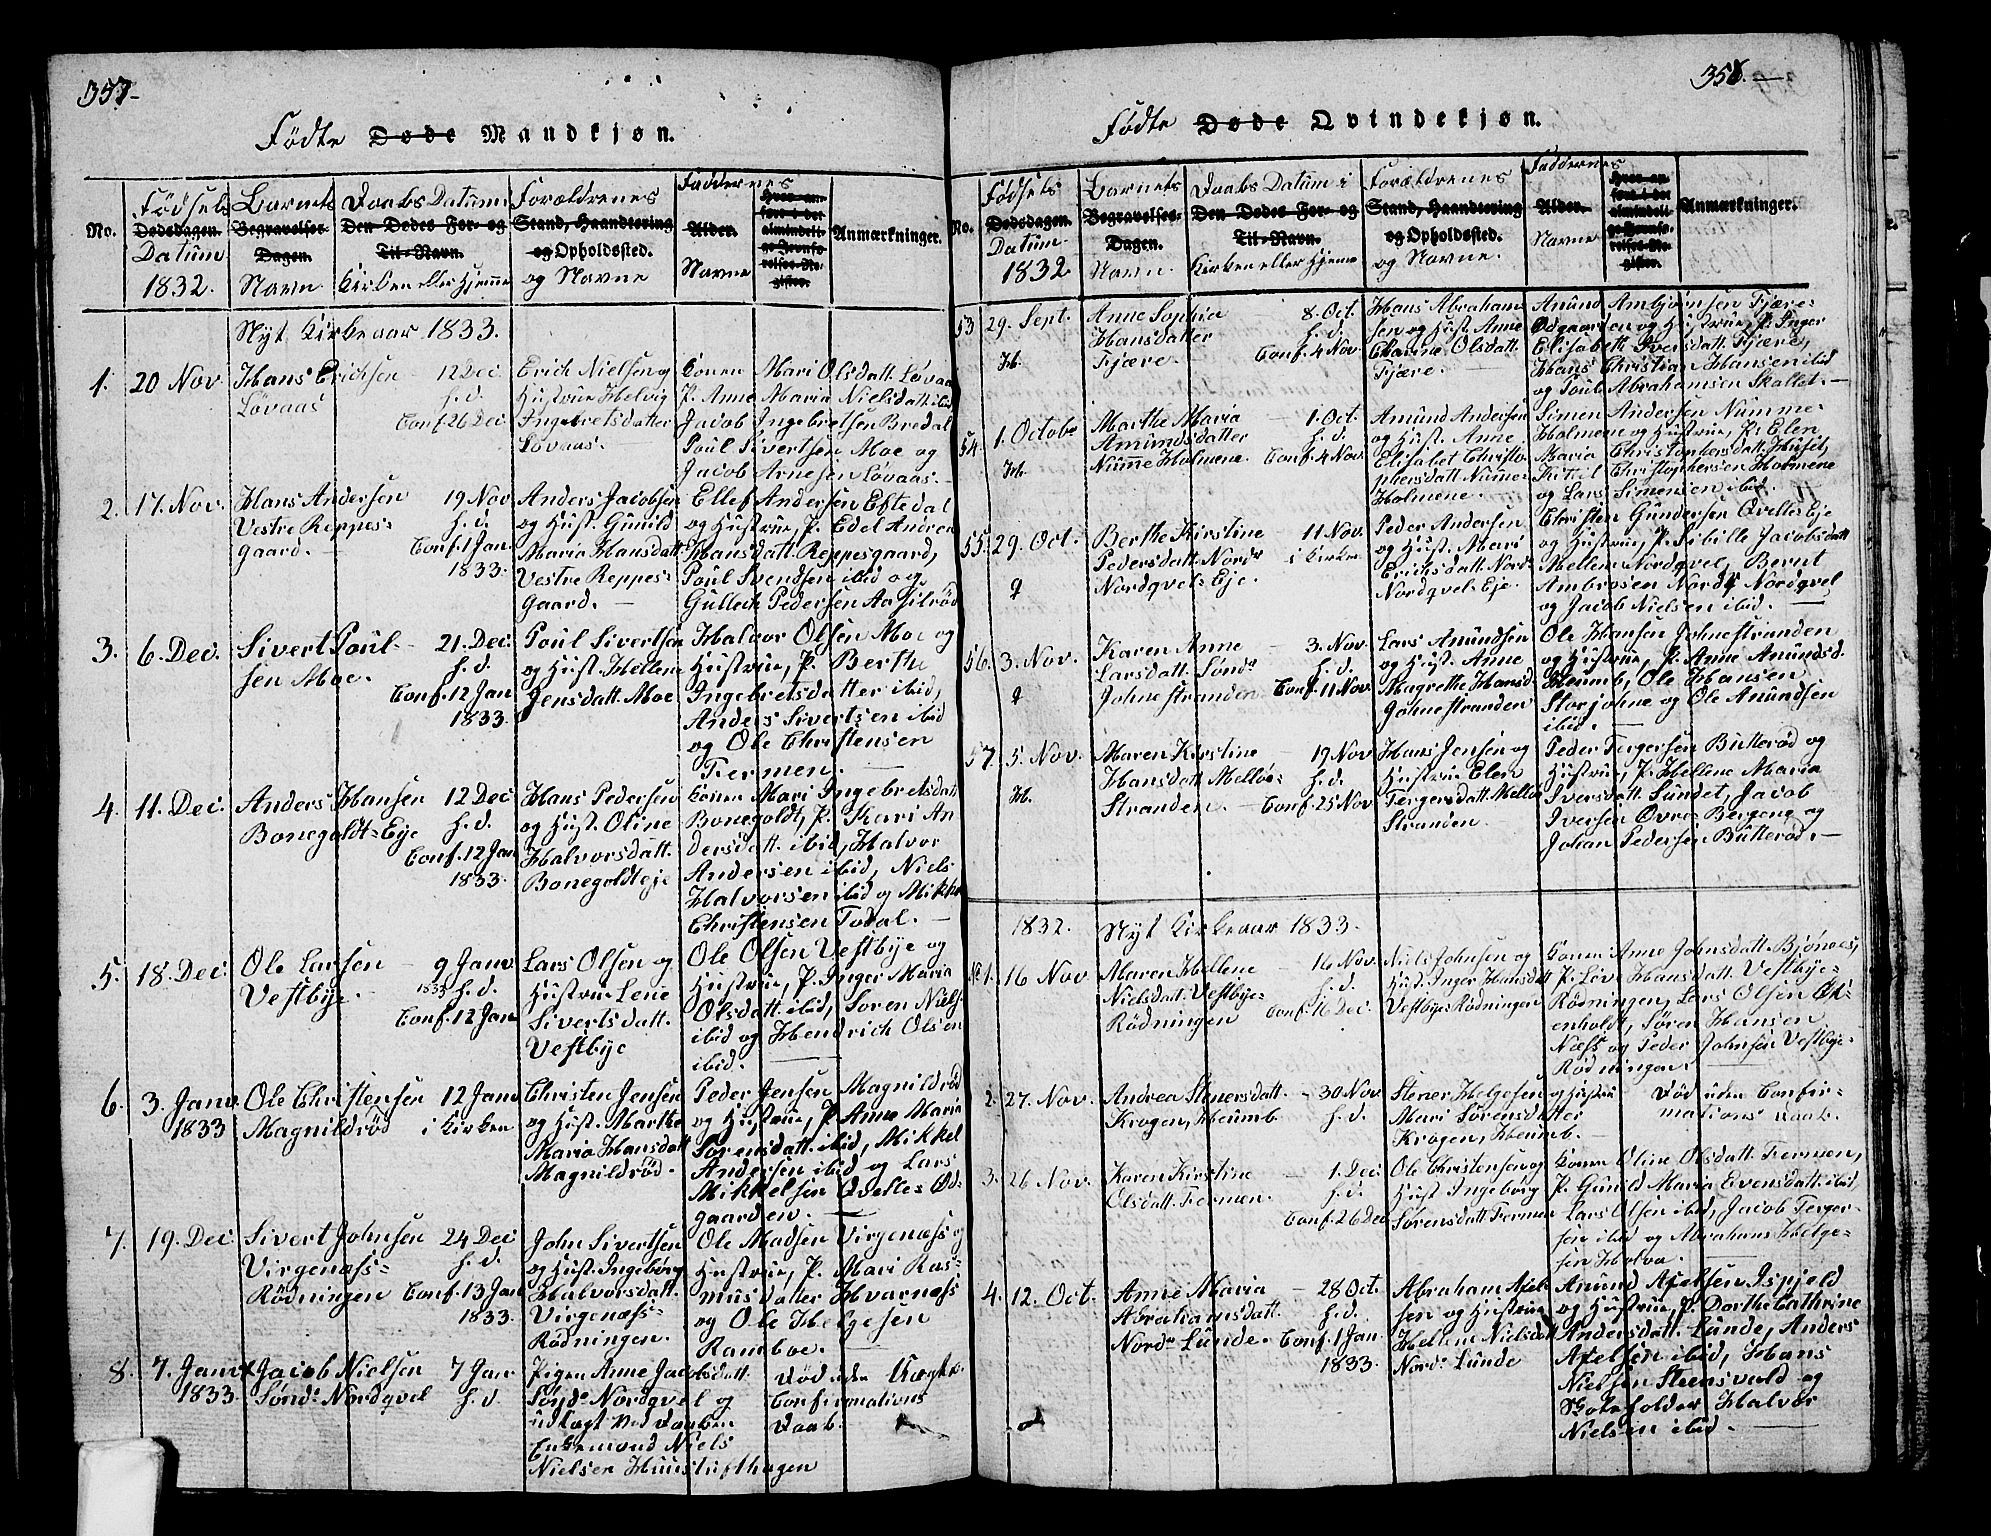 357.
Fødte Døde Mandkjøn.
No.
Fødsels Dødsdagen. Datum 1832.
Barnets Begravelses-Dagen. Navn
Daabs Datum i Den Dødes For- og Til-Navn. Kirken eller Hjemme
Forældrenes Stand, Haandtering og Opholdssted. og Navne
Faddernes Alder. Navne
Hvor anført i det almindelige Jevnførelses-Register.
Anmærkninger.
Nyt Kirkeaar 1833.
1. 20 Nov.
Hans Erichsen
Løvaas
12 Dec.
h. d.
Conf. 26 Dec.
Erich Nielsen og
Hustrue Helvig
Ingebretsdatter
Løvaas.
Konen Mari Olsdatt. Løvaas
P. Anne Maria Nielsdatt. ibid
Jacob Ingebretsen Bredal
Poul Sivertsen Moe og
Jacob Arnesen Løvaas.
2. 17. Nov.
Hans Andersen
Vestre Reppes-
gaard.
19 Nov
h. d.
Conf. 1 Jan
1833.
Anders Jacobsen
og Hust. Gunild
Maria Hansdatt.
Vestre Reppes-
gaard.
Ellef Andersen Eftedal
og Hustrue, P. Edel Andrea
Hansdatt. Reppesgaard,
Poul Svendsen ibid og
Gullech Pedersen Aasilrød
3. 6. Dec.
Sivert Poul-
sen Moe.
21. Dec.
h. d.
Conf. 12 Jan
1833.
Poul Sivertsen
og Hust. Hellene
Jensdatt. Moe
Halvor Olsen Moe og
Hustrue, P. Berthe
Ingebretsdatter ibid,
Anders Sivertsen ibid
og Ole Christensen
Fermen.
4. 11. Dec.
Anders Hansen
Bonegoldt-Eje
12 Dec
h. d.
Conf. 12 Jan
1833.
Hans Pedersen
og Hust. Oline
Halvorsdatt.
Bonegoldteje
Konen Mari Ingebretsdatt
Bonegoldt, P. Kari An
dersdatt. ibid, Halvor
Andersen ibid, Niels
Halvorsen ibid og Mikkel
Christensen Todal.
5. 18. Dec.
Ole Larsen
Vestbye.
9 Janv
1833 h. d.
Conf. 12 Jan
Lars Olsen og
Hustrue Lene
Sivertsdatt.
Vestbye
Ole Olsen Vestbye og
Hustrue, P. Inger Maria
Olsdatt. ibid, Soren Niels
ibid og Hendrich Olsen
ibid.
6. 3. Janv.
1833
Ole Christensen
Magnildrød
12 Janv
i Kirken
Christen Jensen
og Hust. Marthe
Maria Hansdatt
Magnildrød.
Peder Jensen Magnildrød
og Hustrue, P. Anne Maria
Sorensdatt. ibid, Mikkel
Andersen ibid og Lars
Mikkelsen Qvelles-Od-
gaarden.
7. 19. Dec.
Sivert Johnsen
Virgenæss-
Rødningen
24 Dec
h. d.
Conf. 13 Jan
1833.
John Sivertsen
og Hust. Ingeborg
Halvorsdatt.
Virgenæss-
Rødningen.
Ole Madsen Virgenæss og
Hustrue, P. Mari Ras-
musdatter Hvarnæss
og Ole Helgesen
Ramboe.
8. 7. Janv
1833
Jacob Nielsen
Sønd. Nordqvel
7 Jan
h. d.
Pigen Anne Jacobsdatt.
Sønd. Nordqvel og
udlagt ved Daaben
Enkemand Niels
Nielsen Huustufthagen
Død uden
Confirmations
Daab.
358.
Fødte Døde Qvindekjøn.
No.
Fødsels Dødsdagen. Datum 1832
Barnets Begravelses-Dagen. Navn.
Daabs Datum i Den Dødes For- og Til-Navn. Kirken eller Hjemme
Forældrenes Stand, Haandtering og Opholdssted. og Navne.
Faddernes Alder. Navne
Hvor anført i det almindelige Jevnførelses-Register.
Anmærkninger.
53 29. Sept.
Anne Sophia
Hansdatter
Fjære.
8. Oct.
h. d.
Conf. 4 Nov.
Hans Abraham-
sen og Hust. Anne
Charine Olsdatt.
Fjære.
Anund Ambjørnsen Fjære-
Odgaarden og Hustrue, P. Inger
Elisabeth Iversdatt. Fjære,
Hans Christian Hansen ibid
og Poul Abrahamsen Skallet.
54. 1. Octobr
Marthe Maria
Amundsdatter
Numme Holmene.
1. Oct.
h. d.
Conf. 4 Nov.
Amund Andersen
og Hust. Anne
Elisabet Christo-
phersdatt. Numme
Holmene.
Simen Andersen Numme-
Holmene og Hustrue, P. Elen
Maria Christophersdatt. Huset,
Ketil Christophersen Holmene
og Lars Simensen ibid.
55. 29. Oct.
Berthe Kirstine
Pedersdatt. Nordr
Nordqvels Eje.
11 Nov.
i Kirken
Peder Andersen
og Hust. Mari
Erichsdatt. Nordr
Nordqvels Eje
Christen Gundersen Qvelles Eje
og Hustrue, P. Sibille Jacobsdatt
Mellem Nordqvel, Bernt
Ambrosen Nordr Nordqvel
og Jacob Nielsen ibid.
56. 3. Nov.
Karen Anne
Larsdatt. Søndr
Johnestranden
3. Nov
h. d.
Conf. 11 Nov
Lars Anundsen
og Hust. Anne
Magrethe Hansd
Johnestranden
Ole Hansen Johnestranden
og Hustrue, P. Anne Anundsd.
Heumb, Ole Hansen
Storjohne og Ole Anundsen
ibid.
57. 5. Nov.
Maren Kirstine
Hansdatt. Melløs-
Stranden.
19 Nov
h. d.
Conf. 25 Nov
Hans Jensen og
Hustrue Elen
Tergersdatt. Melløs
Stranden
Peder Tergersen Butterød og
Hustrue, P. Hellene Maria
Iversdatt. Sundet, Jacob
Iversen Øvre Bergene og
Johan Pedersen Butterød.
1832. Nyt Kirkeaar 1833.
No 1. 16 Nov
Maren Hellene
Nielsdatt. Vestbye-
Rødningen
16 Nov.
h. d.
Conf. 16 Dec.
Niels Johnsen og
Hust. Inger Hansdatt
Vestbyes Rødningen
Konen Anne Johnsdatt. Bjønnes,
P. Live Hansdatt. Vestbye-
Rødningen, Lars Olsen Ek-
enholdt, Søren Hansen
Næss og Peder Johnsen Vestbye-
Rødningen.
2. 27. Nov.
Andrea Stenersdatt.
Krogen, Heumb.
30 Nov
h. d.
Stener Helgesen og Hustrue
Mari Sørensdatter
Krogen, Heumb.
Død uden Confir-
mations Daab.
3. 26 Nov.
Karen Kirstine
Olsdatt. Fermen.
1. Dec
h. d.
Conf. 26 Dec
Ole Christensen og
Hust. Ingeborg
Sørensdatt Fermen
Konen Oline Olsdatt. Fermen,
P. Gunild Maria Evensdatt. ibid,
Lars Olsen ibid, Jacob Terger-
sen ibid og Abraham Helge-
sen Holva.
4. 12. Oct.
Anne Maria
Abrahamsdatt.
Nordr Lunde.
28 Oct
h. d.
Conf. 1 Jan.
1833.
Abraham Axel-
sen og Hustrue
Hellene Nielsdatt
Nordr Lunde
Anund Axelsen Ispjeld
og Hustrue, P. Dorthe Cathrine
Andersdatt. Lunde, Anders
Axelsen ibid, Hans
Nielsen Steensvald og
Skoleholder Halvor
Nielsen ibid.